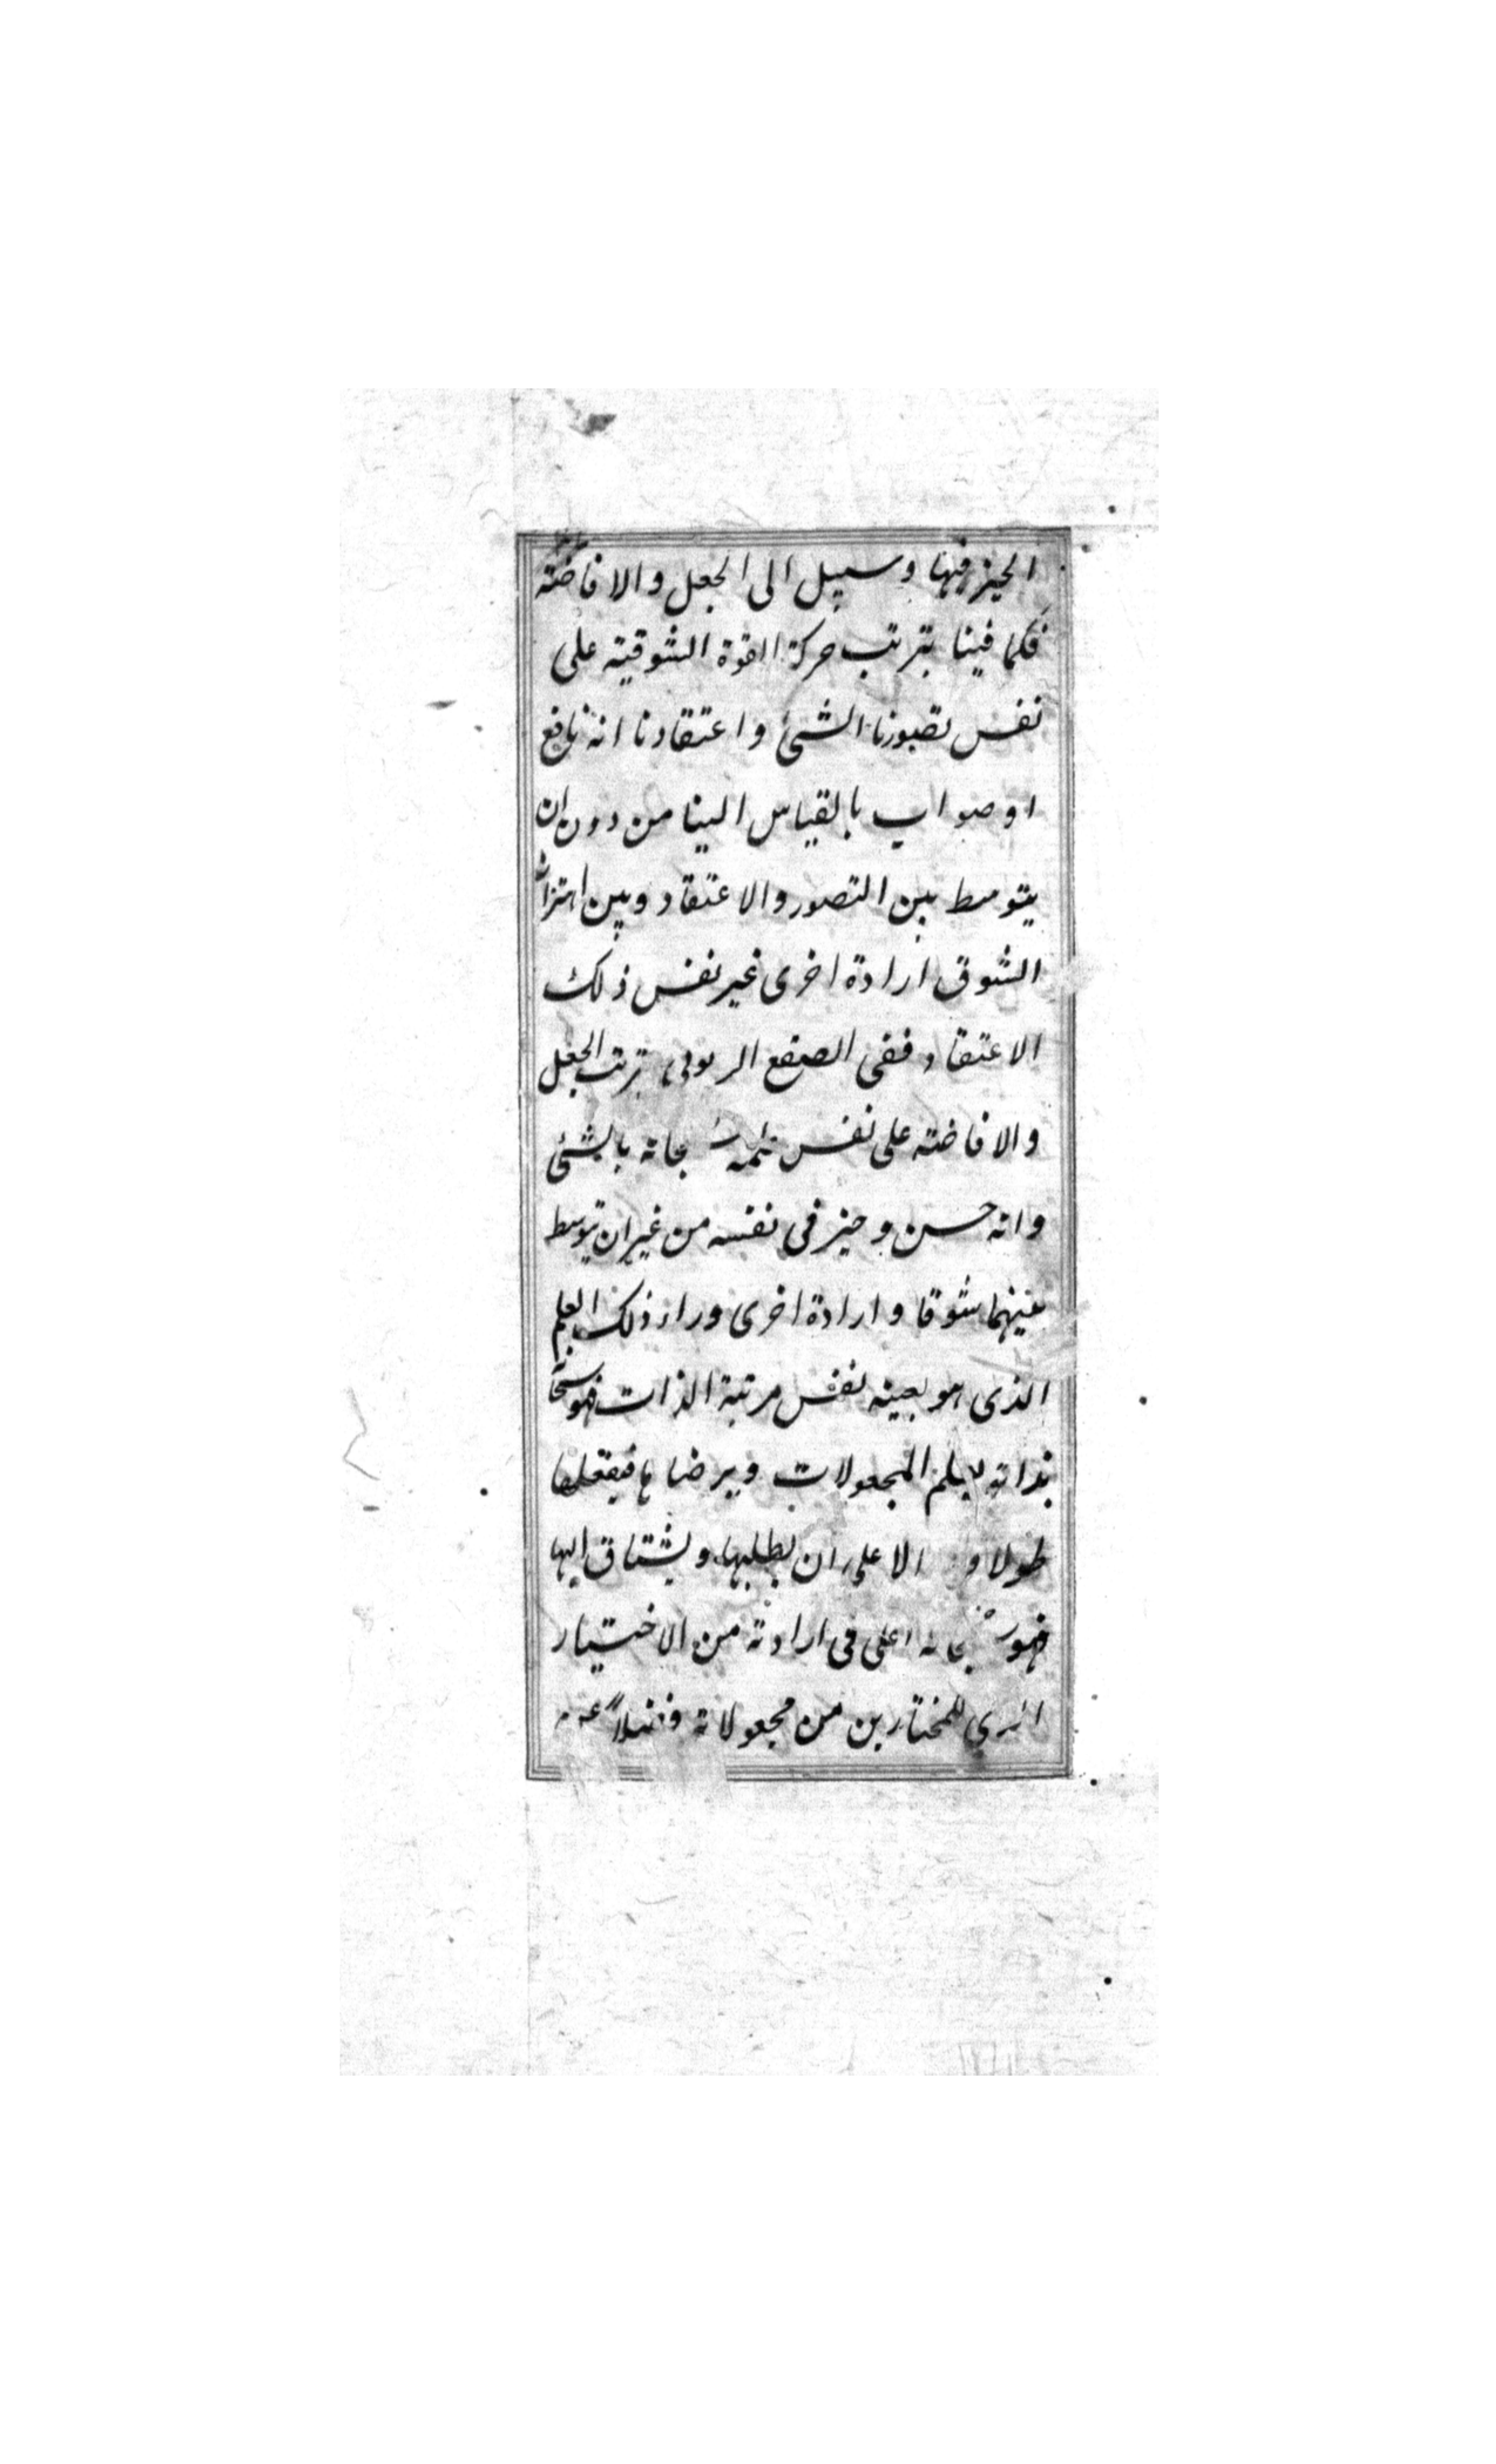 الخير فيها وسبيل الى الجعل والافاضته
فكما فينا يترتب حركة القوة الشوقية على
نفس تصورنا الشئ واعتقادنا انه نافع
او صواب بالقياس الينا من دون ان
يتوسط بين التصور والاعتقاد وبين اهتزاز
الشوق ارادة اخرى غير نفس ذلك
الاعتقاد ففى الصقع الربوبى ترتب الجعل
والافاضته على نفس علمه سبحانه بالشئ
وانه حسن وخير فى نفسه من غير ان يتوسط
بينهما شوقا وارادة اخرى وراء ذلك العلم
الذى هو بعينه نفس مرتبة الذات فهو سبحا
بذاته يعلم المجعولات ويرضاها فيفعلها
طولا و الا على ان يطلبها ويشتاق اليها
فهو سبحانه اعلى فى ارادته من الاختيار
الذى للمختارين من مجعولاته فضلاً عن